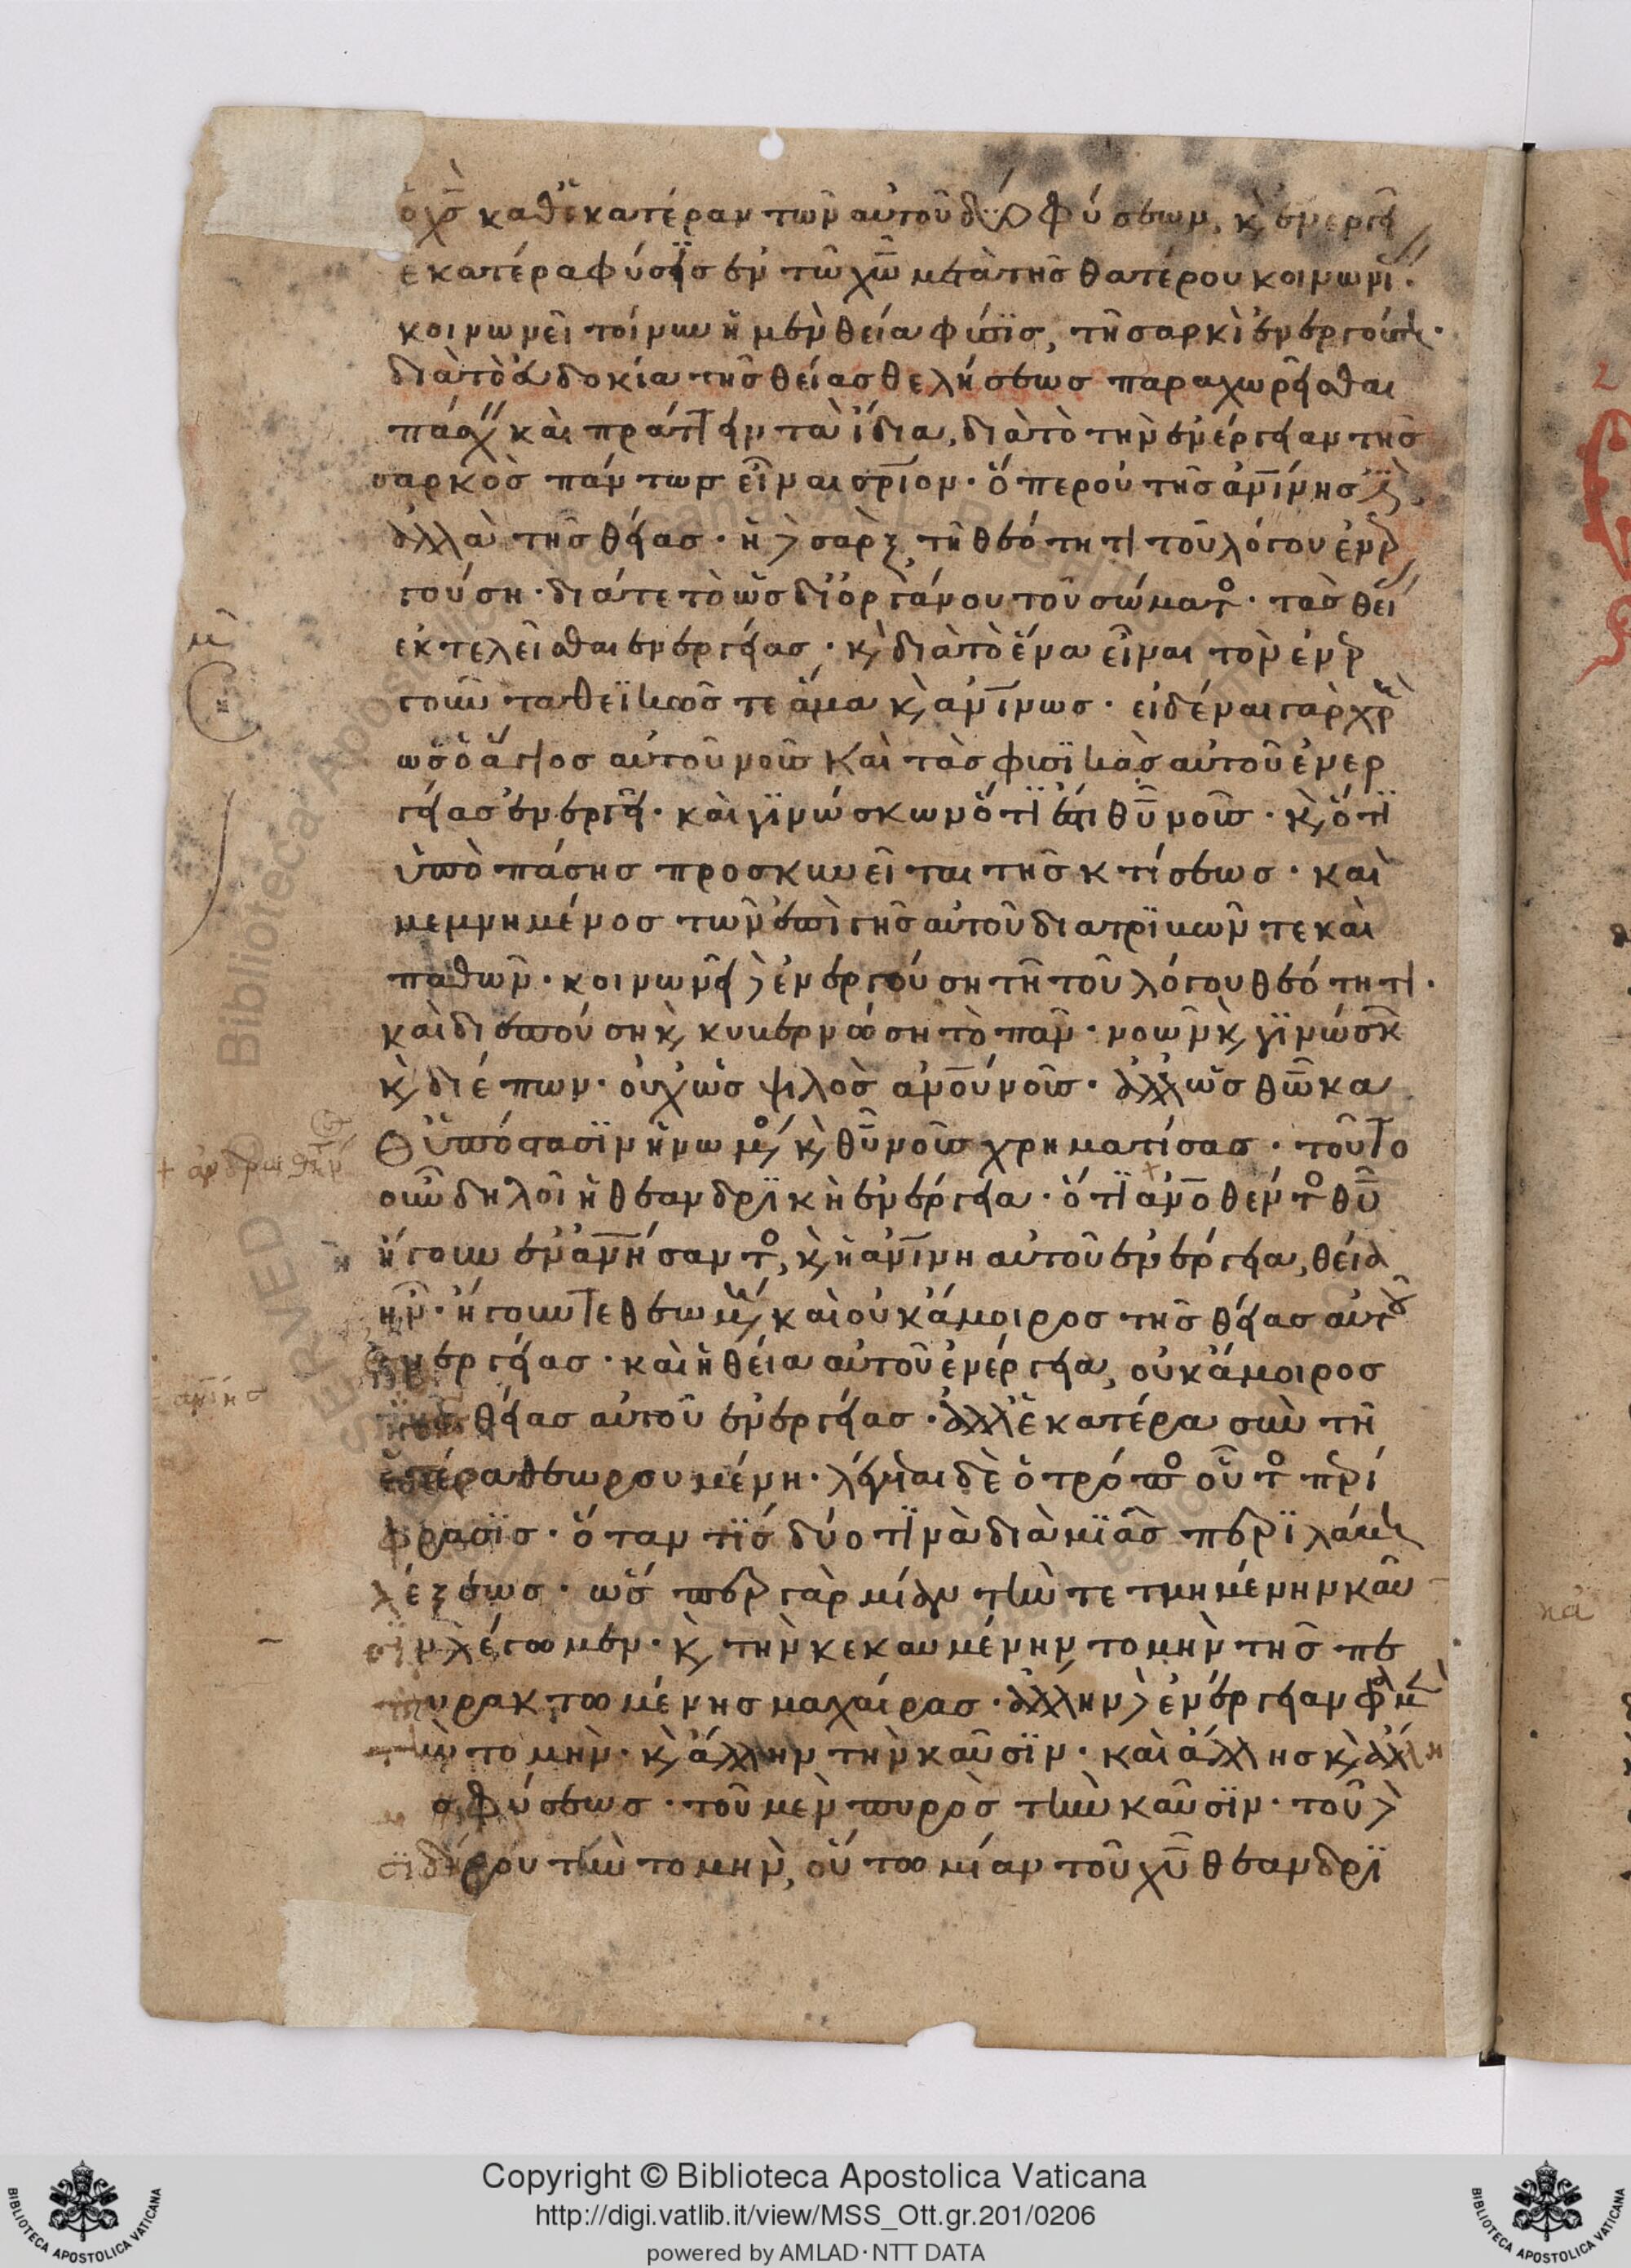 ὁ χς̅ καθ ἑκατέραν τῶν αὐτοῦ δύο φύσεων, κ̀ ἐνεργεῖ
ἑκατέρα φύσϊς ἐν τῶ χω̅ μετὰ τῆς θατέρου κοινωνί.
κοινωνεῖ τοίνυν ἡ μὲν θεία φύσϊς, τῆ σαρκὶ ἐνεργούση.
διὰ τὸ εὐδοκία τῆς θείας θελήσεως παραχωρεῖσθαι
πάσχ καὶ πράττειν τὰ ἴδια, διὰ τὸ τὴν ἐνέργειαν τῆς
σαρκὸς πάντως εἶναι σρ̅ιον. ὅπερ οὐ τῆς αν̅ίνης
ἀλλὰ τῆς θείας. ἡ δὲ σὰρξ τῆ θεότητι τοῦ λόγου ἐνερ
γούση. διά τε τὸ ὡς δι ὀργάνου τοῦ σώματο. τὰς θεί
ἐκτελεῖσθαι ἐνεργείας. κ̀ διὰ τὸ ἕνα εἶναι τὸν ἐνερ
γοῦν τα θεϊκῶς τε ἅμα κ̀ αν̅ίνως. εἰδέναι γὰρ χρὴ
ὡς ὁ ἅγιος αὐτοῦ νοῦς καὶ τὰς φυσϊκὰς αὐτοῦ ἐνερ
γείας ἐνεργεῖ. καὶ γϊνώσκων ὅτϊ ἐστι θυ̅ νοῦς. κ̀ ὅτϊ
ὑπὸ πάσης προσκυνεῖται τῆς κτίσεως. καὶ
μεμνημένος τῶν ἐπὶ γῆς αὐτοῦ διατρϊβῶν τε καὶ
παθῶν. κοινωνεῖ δὲ ἐνεργούση τῆ τοῦ λόγου θεότητι.
καὶ διεπούση κ̀ κυβερνώση τὸ πᾶν. νοῶν κ̀ γϊνώσκ
κ̀ διέπων. οὐχ ὡς ψιλὸς ανο̅υ νοῦς. ἀλλ ὡς θω̅ κα
θ ὑπόστασϊν ἡνωμ κ̀ θυ̅ νοῦς χρηματίσας. τοῦτο
οὖν δηλοῖ ἡ θεανδρϊκὴ ἐνέργεια. ὅτϊ ανο̅θέντο θυ̅
ἤγουν ἐναν̅ήσαντο, κ̀ ἡ αν̅ίνη αὐτοῦ ἐνέργεια, θεία
ἦν. ἤγουν τεθεωμ καὶ οὐκ ἄμοιρος τῆς θείας αὐτοῦ
ἐνεργείας. καὶ ἡ θεία αὐτοῦ ἐνέργεια, οὐκ ἄμοιρος
τῆς θείας αὐτοῦ ἐνεργείας. ἀλλ ἑκατέρα σὺν τῆ
ἑτέρα θεωρουμένη. λέγεται δὲ ὁ τρόπο οὗτο περί
φρασϊς. ὅταν τϊς δύο τϊνὰ διὰ μϊᾶς περϊλάβη
λέξεως. ὥσπερ γὰρ μίαν τὴν τετμημένην καῦ
σϊν λέγωμεν. κ̀ τὴν κεκαυμένην τομὴν τῆς πε
πυρακτωμένης μαχαίρας. ἄλλην δὲ ἐνέργειαν φαμὲν
τὴν τομὴν. κ̀ ἄλλην τὴν καῦσϊν. καὶ ἄλλης κ̀ ἄλλη
ς φύσεως. τοῦ μὲν πυρὸς τὴν καῦσϊν. τοῦ δὲ
σϊδήρου τὴν τομὴν, οὕτω μίαν τοῦ χυ̅ θεανδρϊ
Copyright © Biblioteca Apostolica Vaticana
http://digi.vatlib.it/view/MSS_Ott.gr.201/0206
powered by AMLAD·NTT DATA